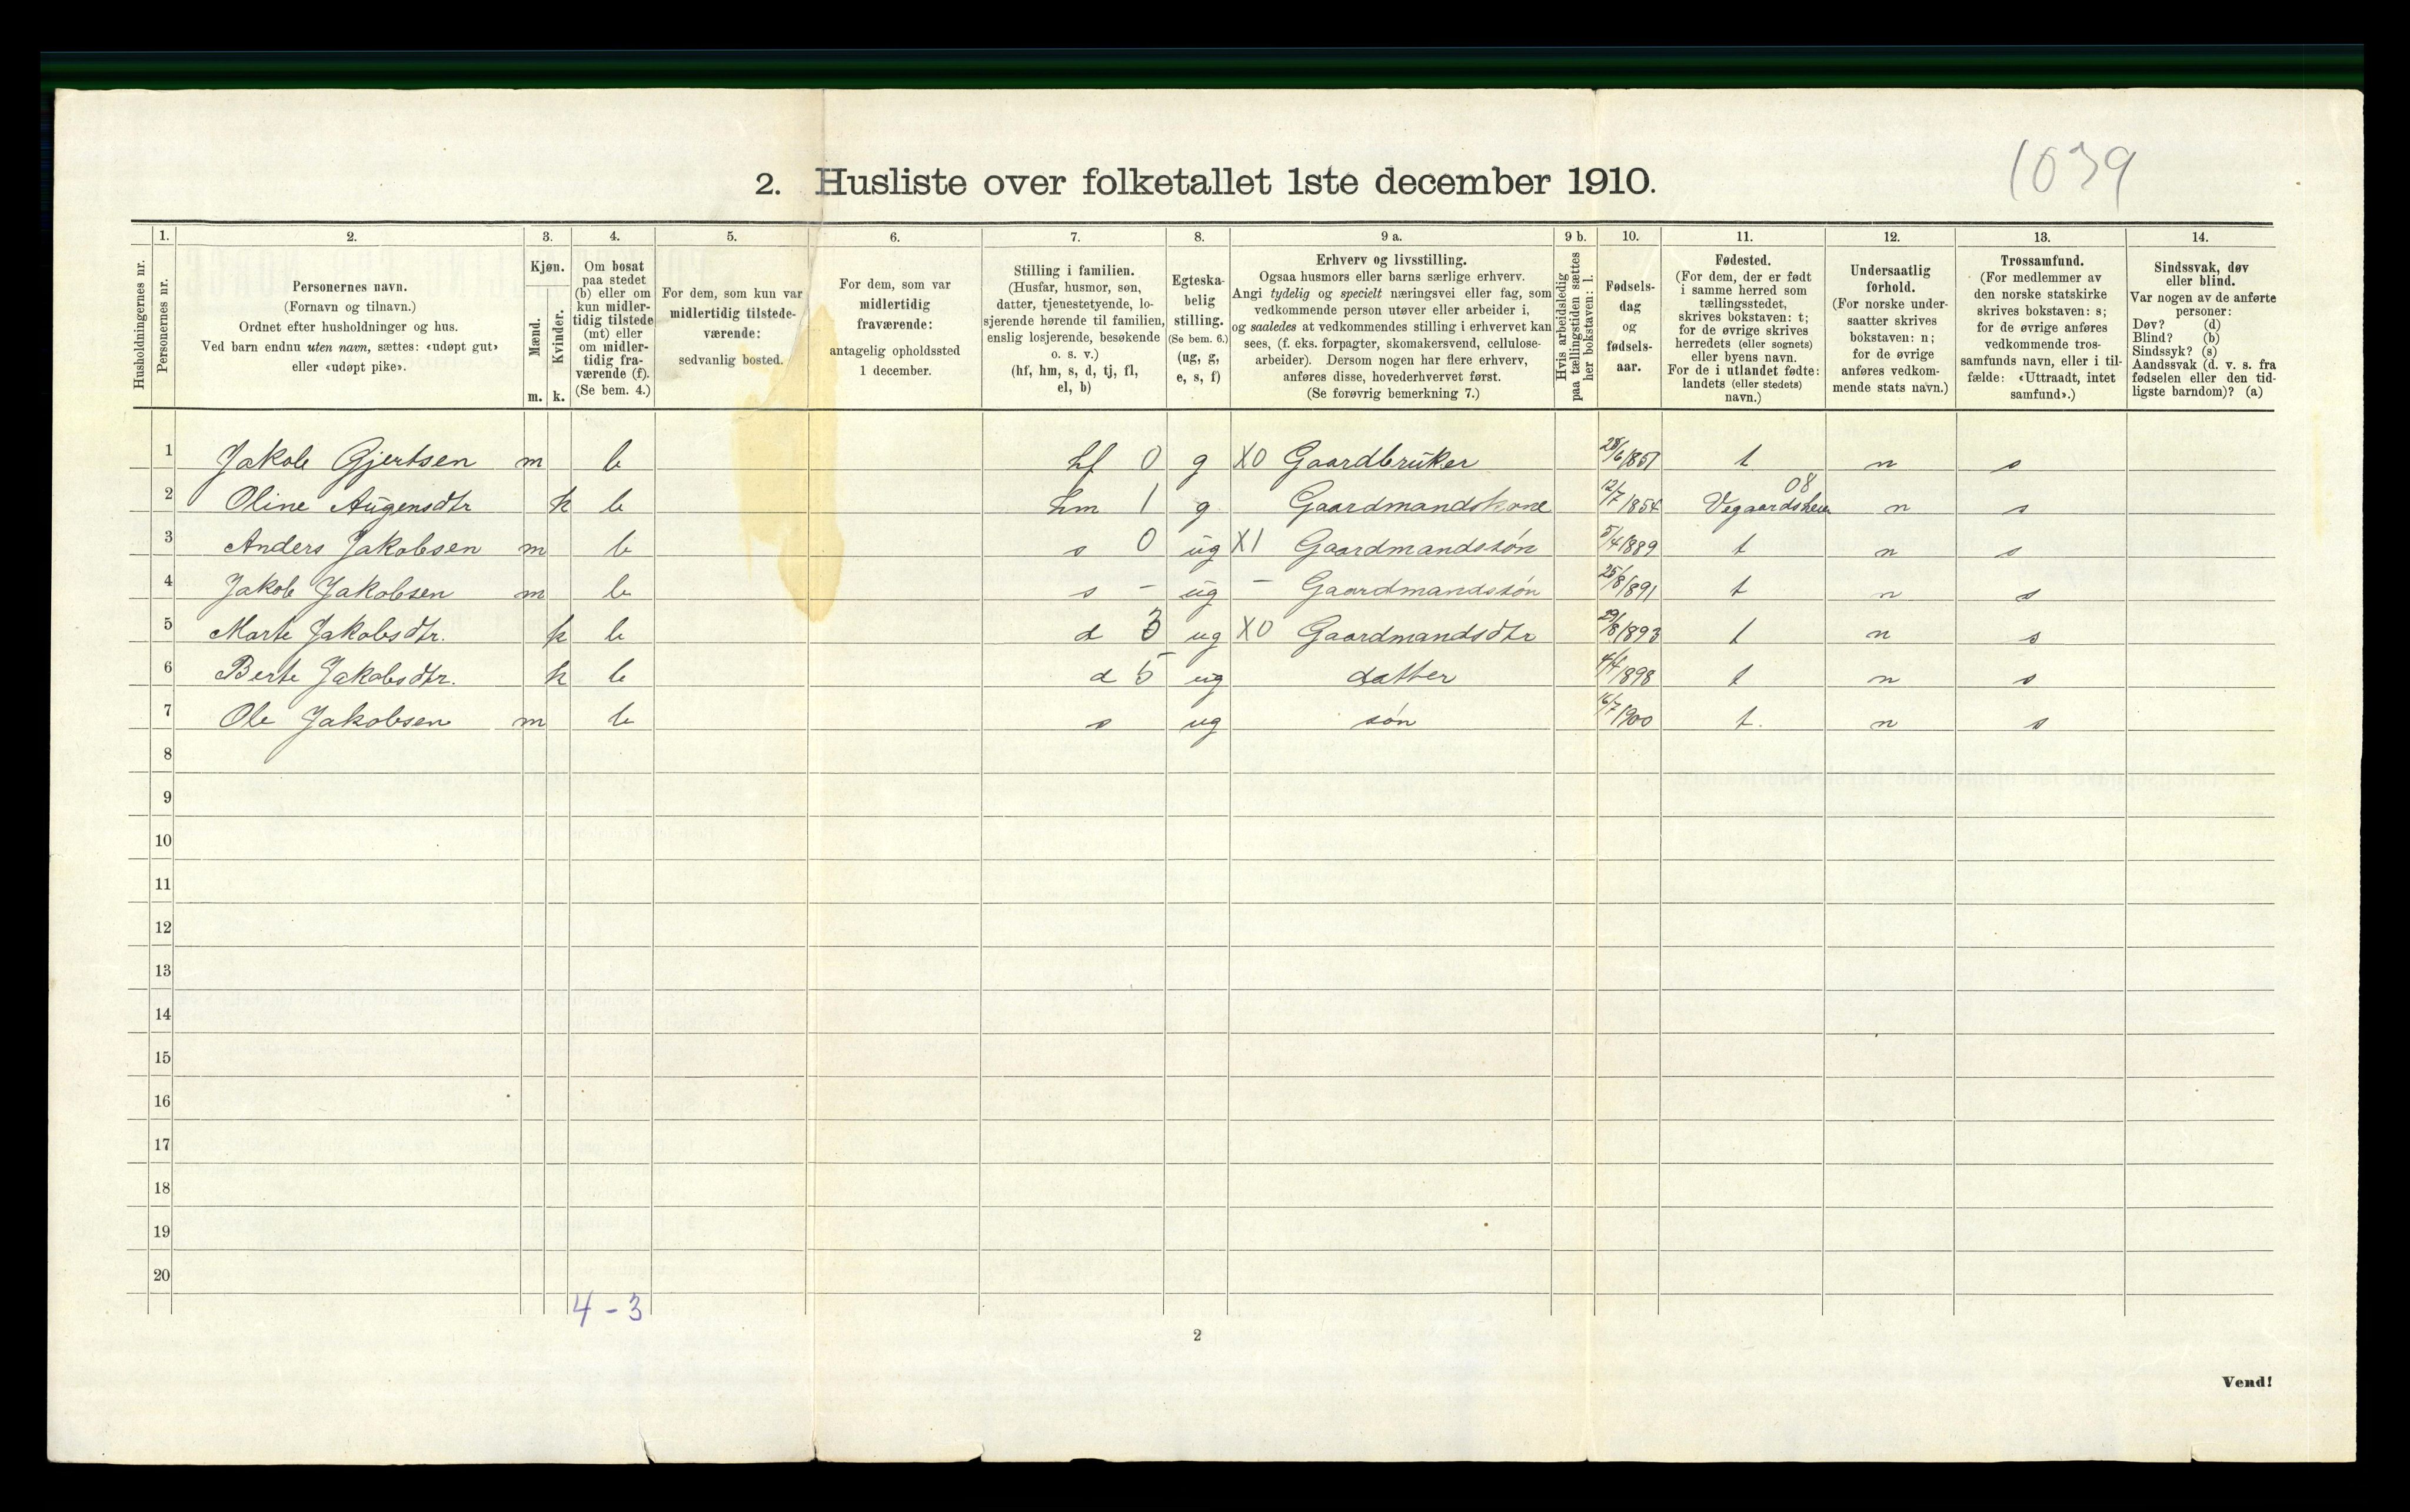 1039
2. Husliste over folketallet 1ste december 1910.
1. 2. 3. 4. 5. 6. 7. 8. 9 a. 9 b. 10. 11. 12. 13. 14.
Husholdningernes nr.
Personernes nr.
Personernes navn.
(Fornavn og tilnavn.)
Ordnet efter husholdninger og hus.
Ved barn endnu uten navn, sættes: «udøpt gut»
eller «udøpt pike».
Kjøn.
Mænd.
Kvinder.
m. k.
Om bosat
paa stedet
(b) eller om
kun midler-
tidig tilstede
(mt) eller
om midler-
tidig fra-
værende (f).
(Se bem. 4.)
For dem, som kun var
midlertidig tilstede-
værende:
sedvanlig bosted.
For dem, som var
midlertidig
fraværende:
antagelig opholdssted
1 december.
Stilling i familien.
(Husfar, husmor, søn,
datter, tjenestetyende, lo-
sjerende hørende til familien,
enslig losjerende, besøkende
o. s. v.)
(hf, hm, s, d, tj, fl,
el, b)
Egteska-
belig
stilling.
(Se bem. 6.)
(ug, g,
e, s, f)
Erhverv og livsstilling.
Ogsaa husmors eller barns særlige erhverv.
Angi tydelig og specielt næringsvei eller fag, som
vedkommende person utøver eller arbeider i,
og saaledes at vedkommendes stilling i erhvervet kan
sees, (f. eks. forpagter, skomakersvend, cellulose-
arbeider). Dersom nogen har flere erhverv,
anføres disse, hovederhvervet først.
(Se forøvrig bemerkning 7.)
Hvis arbeidsledig
paa tællingstiden sættes
her bokstaven: l.
Fødsels-
dag
og
fødsels-
aar.
Fødested.
(For dem, der er født
i samme herred som
tællingsstedet,
skrives bokstaven: t;
for de øvrige skrives
herredets (eller sognets)
eller byens navn.
For de i utlandet fødte:
landets (eller stedets)
navn.)
Undersaatlig
forhold.
(For norske under-
saatter skrives
bokstaven: n;
for de øvrige
anføres vedkom-
mende stats navn.)
Trossamfund.
(For medlemmer av
den norske statskirke
skrives bokstaven: s;
for de øvrige anføres
vedkommende tros-
samfunds navn, eller i til-
fælde: «Uttraadt, intet
samfund».)
Sindssvak, døv
eller blind.
Var nogen av de anførte
personer:
Døv? (d)
Blind? (b)
Sindssyk? (s)
Aandssvak (d. v. s. fra
fødselen eller den tid-
ligste barndom)? (a)
1 Jakob Gjertsen m b hf 0 g X0 Gaardbruker t n s
08
2 Oline Augensdtr k b hm 1 g Gaardmandskone 12/7 1854 Vegaardsheien n s
3 Anders Jakobsen m b s 0 ug X1 Gaardmandssøn 5/4 1889 t n s
4 Jakob Jakobsen m b s - ug - Gaardmandssøn 25/8 1891 t n s
5 Marte Jakobsdtr. k b d 3 ug X0 Gaardmandsdtr 29/8 1893 t n s
6 Berte Jakobsdtr. k b d 5 ug datter 4/4 1898 t n s
7 Ole Jakobsen m b s ug søn 16/7 1900 t. n s
8
9
10
11
12
13
14
15
16
17
18
19
20
4-3
2
Vend!